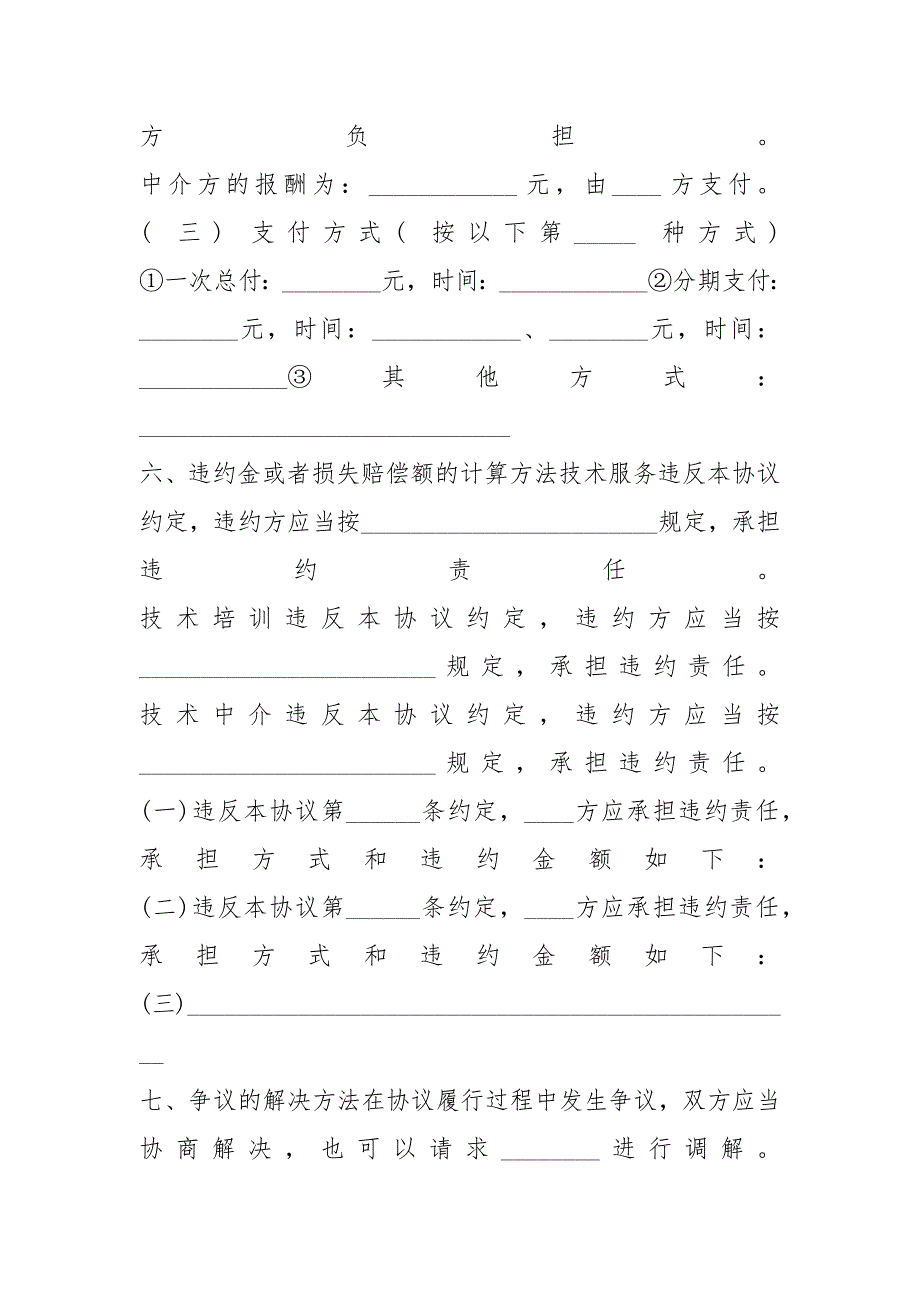 方负担。
中介方的报酬为：____________元，由____方支付。
(三)支付方式(按以下第_____种方式)
①一次总付：________元，时间：____________②分期支付：
________元，时间：____________、________元，时间：
____________③其他方式：
______________________________
六、违约金或者损失赔偿额的计算方法技术服务违反本协议
约定，违约方应当按________________________规定，承担
违约责任。
技术培训违反本协议约定，违约方应当按
________________________规定，承担违约责任。
技术中介违反本协议约定，违约方应当按
________________________规定，承担违约责任。
(一)违反本协议第______条约定，____方应承担违约责任，
承担方式和违约金额如下：
(二)违反本协议第______条约定，____方应承担违约责任，
承担方式和违约金额如下：
(三)________________________________________________
__
七、争议的解决方法在协议履行过程中发生争议，双方应当
协商解决，也可以请求________进行调解。